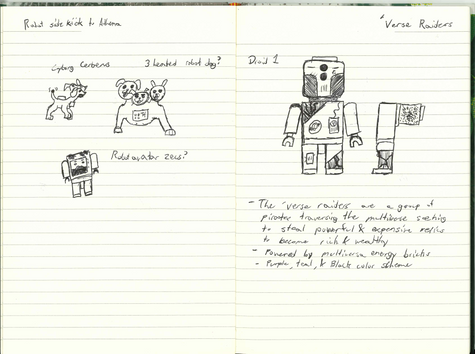 Robot side kick to Athena
Cyborg Cerberus
3 headed robot dog?
Robot avatar zeus?
'Verse Raiders
Droid 1
- The 'verse raiders are a group of
pirates traversing the multiverse seeking
to steal powerful & expensive relics
to become rich & wealthy
- Powered by multiversa energy bricks
- Purple, teal, & Black color scheme